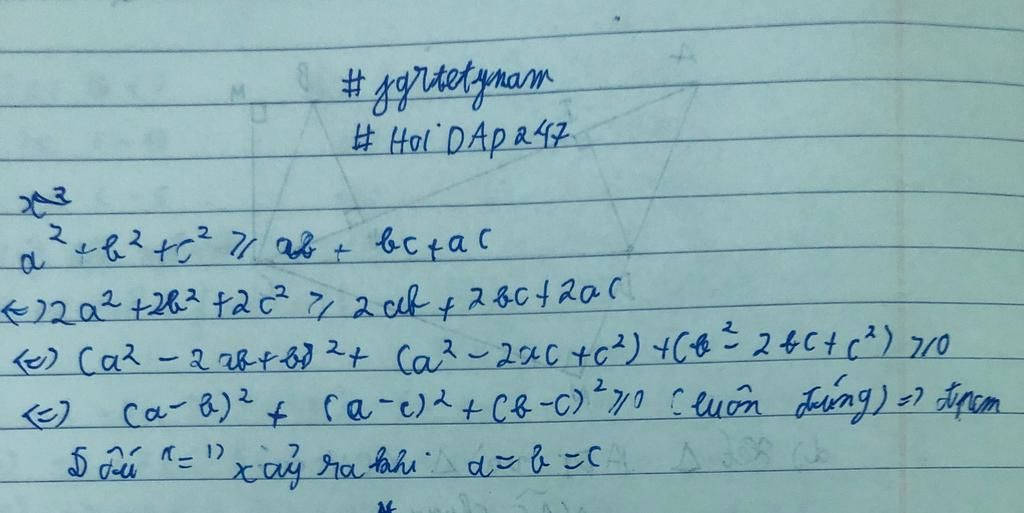 # jgrtetynam
# Hoi DAp 247
x²
a² + b² + c² ⩾ ab + bc + ac
(=) 2a² + 2b² + 2c² ⩾ 2ab + 2bc + 2ac
(=) (a² - 2ab + b)² + (a² - 2ac + c²) + (b² - 2bc + c²) ⩾ 0
(=) (a - b)² + (a - c)² + (b - c)² ⩾ 0 (luôn đúng) => đpcm
Dấu "=" xảy ra khi a = b = c